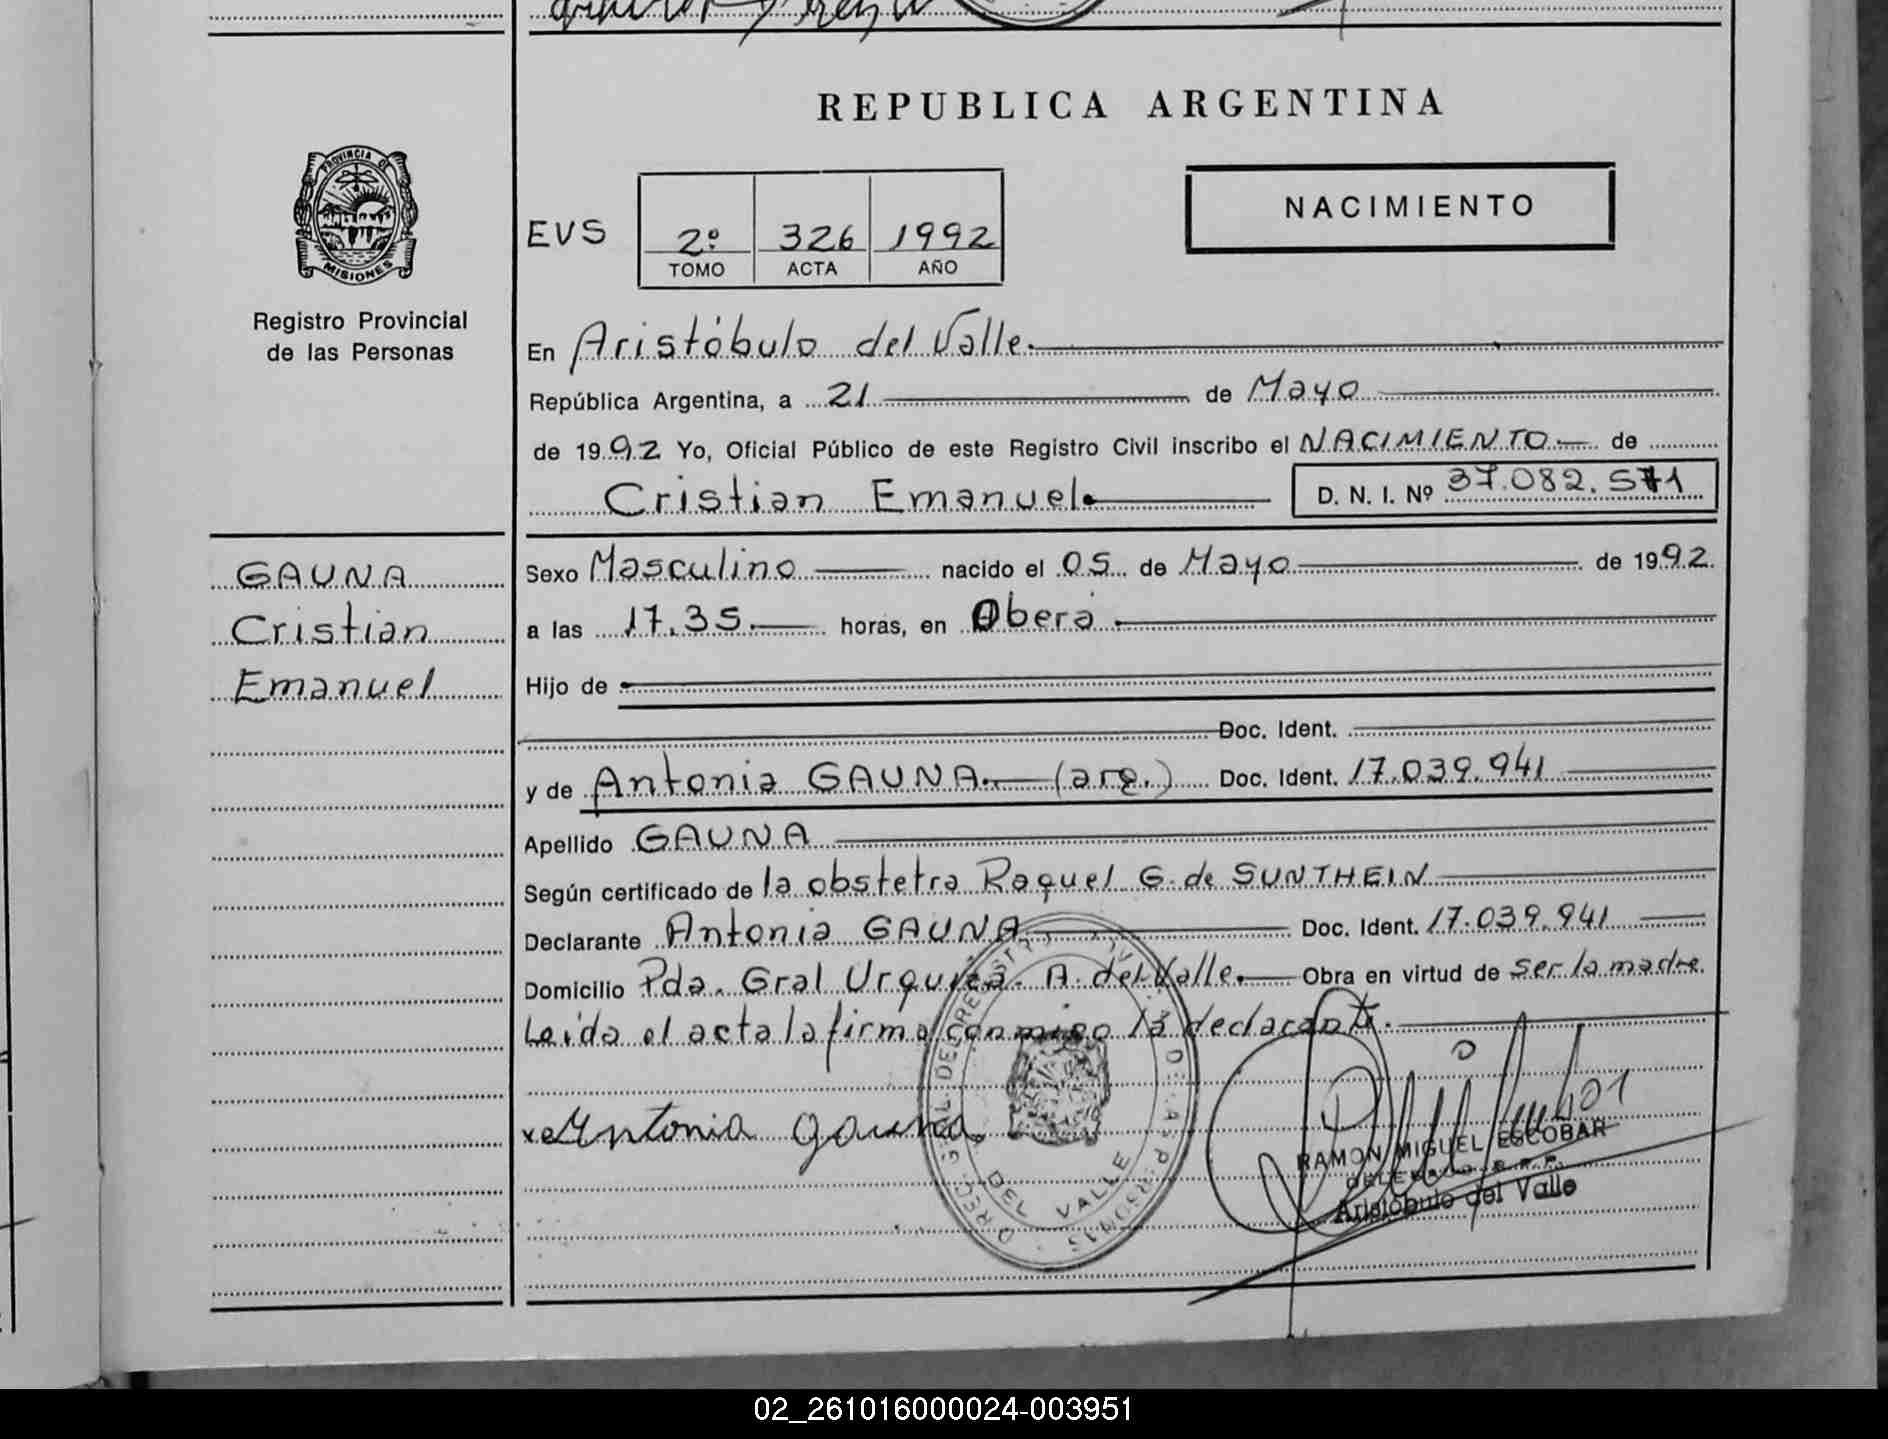 REPUBLICA ARGENTINA
PROVINCIA DE
MISIONES
Registro Provincial
de las Personas
NACIMIENTO
EVS 2º 326 1992
TOMO ACTA AÑO
En Aristóbulo del Valle.
República Argentina, a 21 de Mayo
de 1992 Yo, Oficial Público de este Registro Civil inscribo el NACIMIENTO de
Cristian Emanuel. D. N. I. Nº 37.082.571
GAUNA
Cristian
Emanuel
Sexo Masculino nacido el 05 de Mayo de 1992.
a las 17.35. horas, en Oberá
Hijo de
Doc. Ident.
y de Antonia GAUNA. (arg.) Doc. Ident. 17.039.941
Apellido GAUNA
Según certificado de la obstetra Raquel G. de SUNTHEIN
Declarante Antonia GAUNA Doc. Ident. 17.039.941
Domicilio Pda. Gral Urquiza. A. del Valle. Obra en virtud de ser la madre.
Leída el acta la firma conmigo la declarante.
Antonia gauna
DEL VALLE
RAMON MIGUEL ESCOBAR
Aristóbulo del Valle
02_261016000024-003951